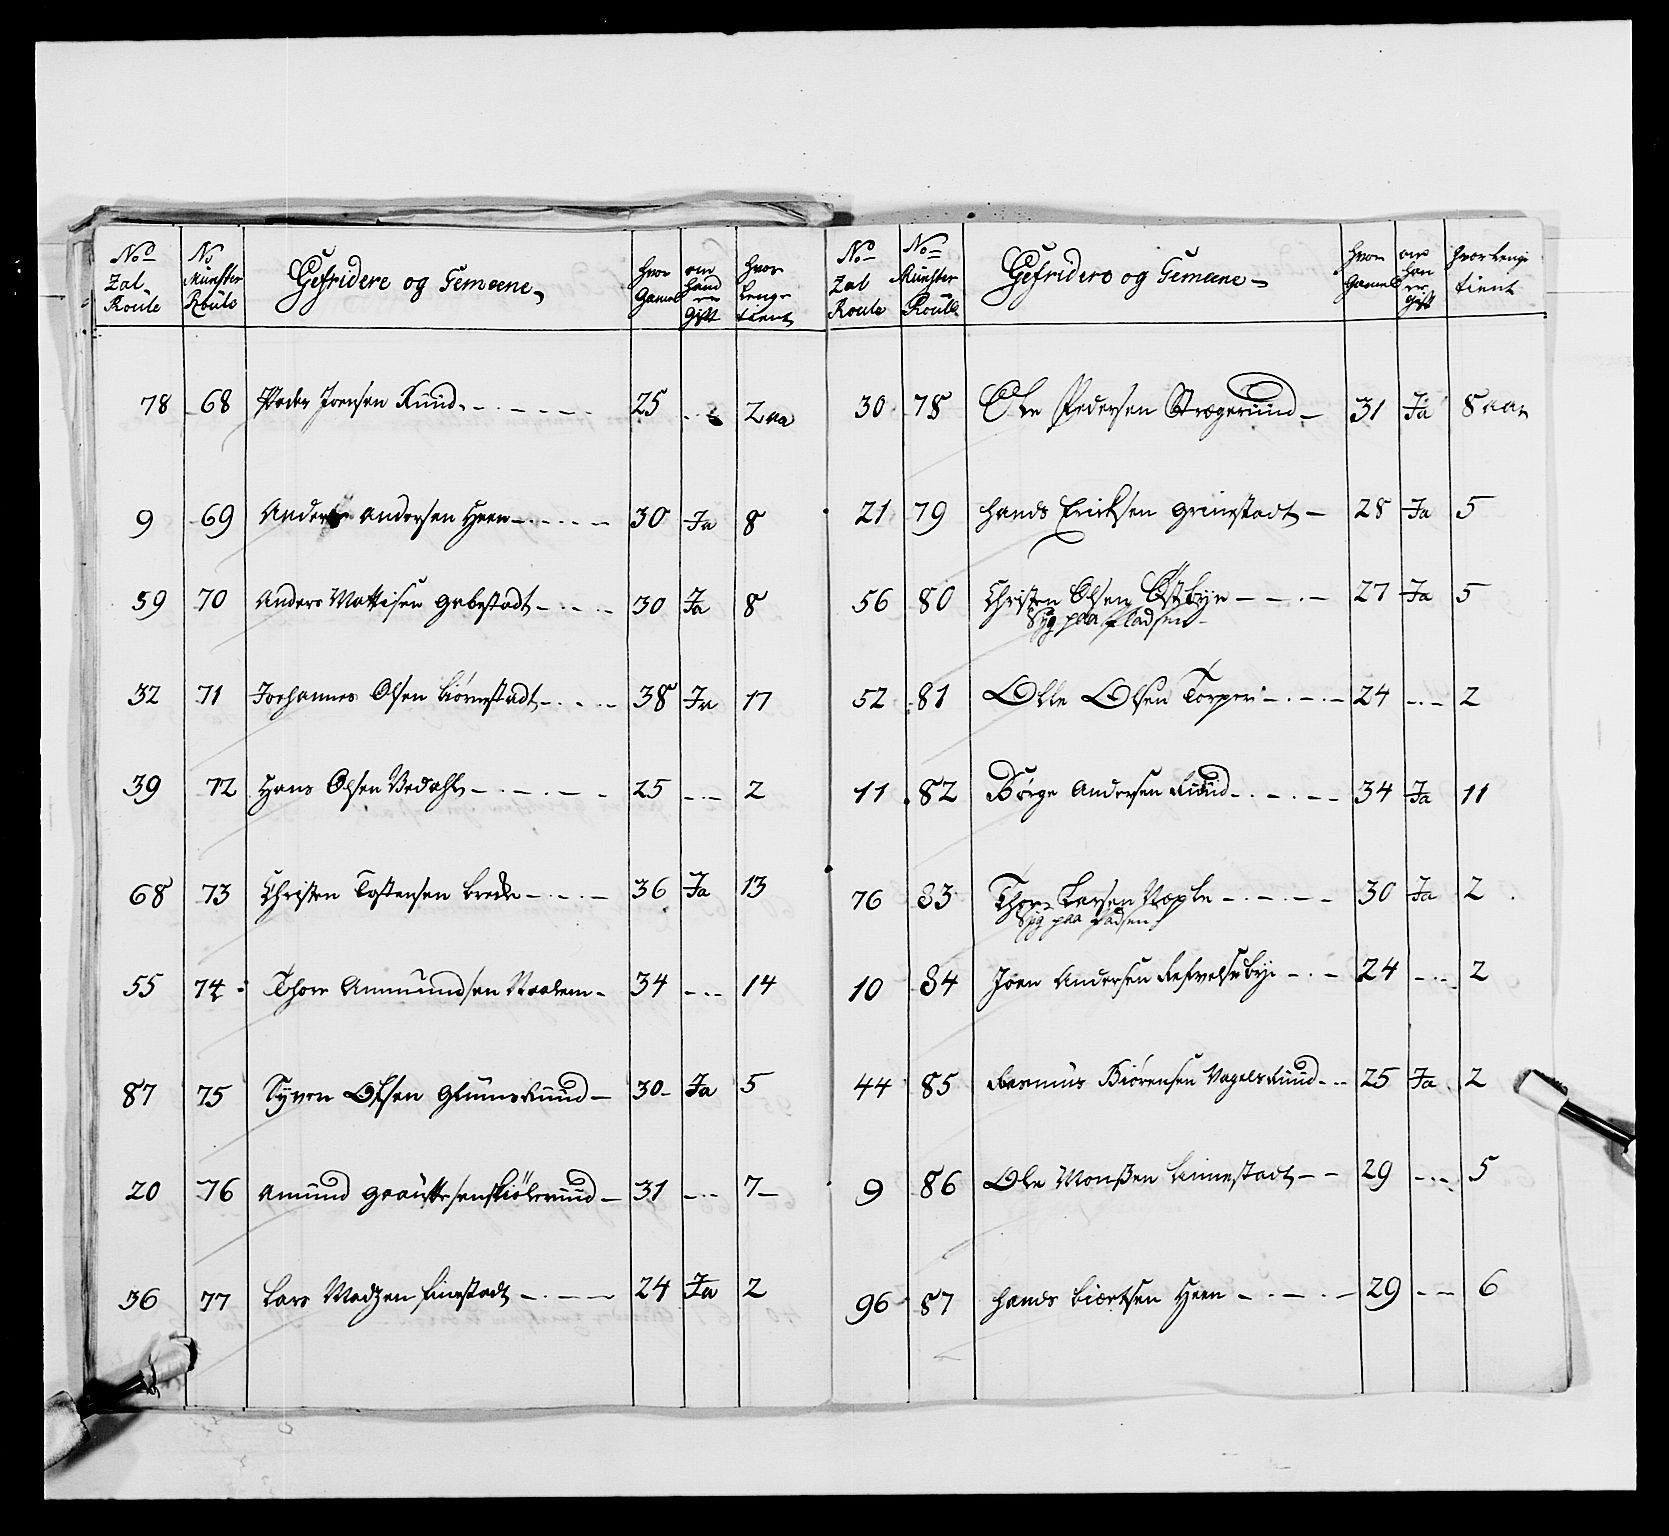 No Zal Roule | No Munster Roule | Gefridere og Gemeene | hvor Gamel | om hand er Gift | hvor lenge tient
78 68 Peder Joensen Ruud 25 2 aa
9 69 Anders Andersen Heen 30 Ja 8
59 70 Anders Mattisen Grbestadt 30 Ja 8
32 71 Joehannes Olsen Biörnestadt 38 Ja 17
39 72 Hans Olsen Bedahl 25 2
68 73 Christen Tostensen Brecke 36 Ja 13
55 74 Thor Ammundsen 34 14
87 75 Syver Olsen Glumsruud 30 Ja 5
20 76 Amund 31 7
36 77 Lars Madzen Finestadt 24 Ja 2
No Zal Roule | No Munster Roulle | Gefridere og Gemeene | hvor Gamel | om han er Gift | hvor lenge tient
30 78 Ole Pedersen Strægeruud 31 Ja 8 aar
21 79 Hands Ericksen Grimestadt 28 Ja 5
56 80 Christen Olsen Östbye 27 Ja 5
Syg paa Pladsen
52 81 Olle Olsen Torper 24 2
11 82 Börge Andersen Ruud 34 Ja 11
76 83 Thor Larsen Næple 30 Ja 2
Syg paa Pladsen
10 84 Joen Andersen 24 2
44 85 Rasmus Biörensen Vagelsruud 25 Ja 2
9 86 Ole Monsen Linnestadt 29 5
96 87 Hands Biertsen Heen 29 6